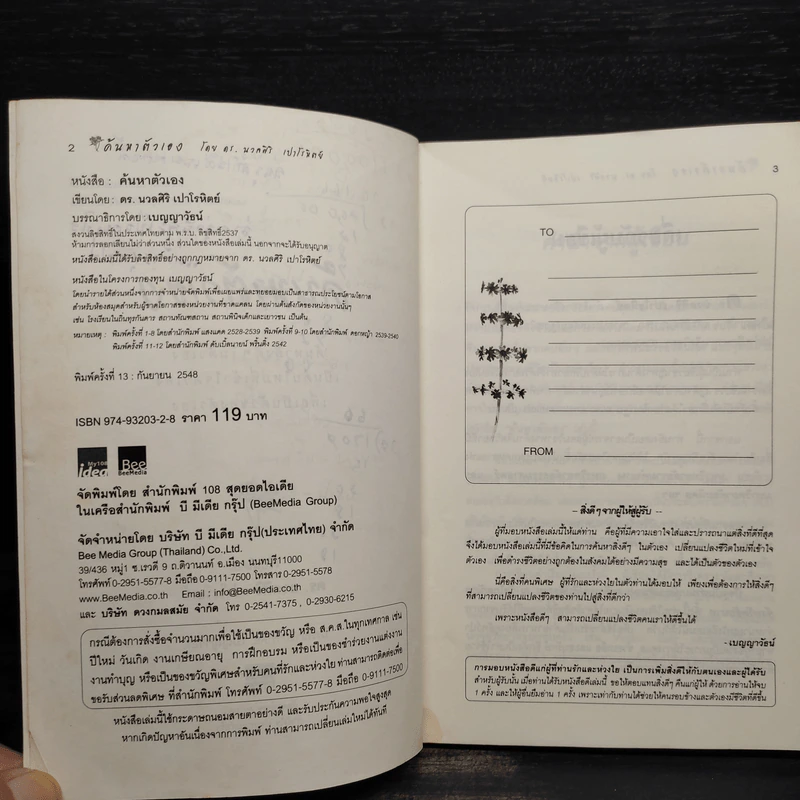 2 ค้นหาตัวเอง โดย ดร. นวลศิริ เปาโรหิตย์
หนังสือ : ค้นหาตัวเอง
เขียนโดย : ดร. นวลศิริ เปาโรหิตย์
บรรณาธิการโดย : เบญญาวัธน์
สงวนลิขสิทธิ์ในประเทศไทยตาม พ.ร.บ. ลิขสิทธิ์2537
ห้ามการลอกเลียนไม่ว่าส่วนหนึ่ง ส่วนใดของหนังสือเล่มนี้ นอกจากจะได้รับอนุญาต
หนังสือเล่มนี้ได้รับลิขสิทธิ์อย่างถูกกฎหมายจาก ดร. นวลศิริ เปาโรหิตย์
หนังสือในโครงการกองทุน เบญญาวัธน์
โดยนำรายได้ส่วนหนึ่งจากการจำหน่ายจัดพิมพ์เพื่อเผยแพร่และทยอยมอบเป็นสาธารณประโยชน์ตามโอกาส
สำหรับห้องสมุดสำหรับผู้ขาดโอกาสของหน่วยงานที่ขาดแคลน โดยผ่านต้นสังกัดของหน่วยงานนั้นๆ
เช่น โรงเรียนในถิ่นทุรกันดาร สถานทัณฑสถาน สถานพินิจเด็กและเยาวชน เป็นต้น
หมายเหตุ : พิมพ์ครั้งที่ 1-8 โดยสำนักพิมพ์ แสงแดด 2528-2539 พิมพ์ครั้งที่ 9-10 โดยสำนักพิมพ์ ดอกหญ้า 2539-2540
พิมพ์ครั้งที่ 11-12 โดยสำนักพิมพ์ ดับเบิ้ลนายน์ พริ้นติ้ง 2542
พิมพ์ครั้งที่ 13 : กันยายน 2548
ISBN 974-93203-2-8 ราคา 119 บาท
My108 idea Bee BeeMedia
จัดพิมพ์โดย สำนักพิมพ์ 108 สุดยอดไอเดีย
ในเครือสำนักพิมพ์ บี มีเดีย กรุ๊ป (BeeMedia Group)
จัดจำหน่ายโดย บริษัท บี มีเดีย กรุ๊ป(ประเทศไทย) จำกัด
Bee Media Group (Thailand) Co.,Ltd.
39/436 หมู่1 ซ.เรวดี 9 ถ.ติวานนท์ อ.เมือง นนทบุรี11000
โทรศัพท์ 0-2951-5577-8 มือถือ 0-9111-7500 โทรสาร 0-2951-5578
www.BeeMedia.co.th Email : info@BeeMedia.co.th
และ บริษัท ดวงกมลสมัย จำกัด โทร 0-2541-7375 , 0-2930-6215
กรณีต้องการสั่งซื้อจำนวนมากเพื่อใช้เป็นของขวัญ หรือ ส.ค.ส.ในทุกเทศกาล เช่น
ปีใหม่ วันเกิด งานเกษียณอายุ การฝึกอบรม หรือเป็นของชำร่วยงานแต่งงาน
งานทำบุญ หรือเป็นของขวัญพิเศษสำหรับคนที่รักและห่วงใย ท่านสามารถติดต่อเพื่อ
ขอรับส่วนลดพิเศษ ที่สำนักพิมพ์ โทรศัพท์ 0-2951-5577-8 มือถือ 0-9111-7500
หนังสือเล่มนี้ใช้กระดาษถนอมสายตาอย่างดี และรับประกันความพอใจสูงสุด
หากเกิดปัญหาอันเนื่องจากการพิมพ์ ท่านสามารถเปลี่ยนเล่มใหม่ได้ทันที
3
TO
FROM
- สิ่งดีๆจากผู้ให้สู่ผู้รับ -
ผู้ที่มอบหนังสือเล่มนี้ให้แด่ท่าน คือผู้ที่มีความเอาใจใส่และปรารถนาแต่สิ่งที่ดีที่สุด
จึงได้มอบหนังสือเล่มนี้ที่มีข้อคิดในการค้นหาสิ่งดีๆ ในตัวเอง เปลี่ยนแปลงชีวิตใหม่ที่เข้าใจ
ตัวเอง เพื่อดำรงชีวิตอย่างถูกต้องในสังคมได้อย่างมีความสุข และได้เป็นตัวของตัวเอง
นี่คือสิ่งที่คนพิเศษ ผู้ที่รักและห่วงใยในตัวท่านได้มอบให้ เพียงเพื่อต้องการให้สิ่งดีๆ
ที่สามารถเปลี่ยนแปลงชีวิตของท่านไปสู่สิ่งที่ดีกว่า
เพราะหนังสือดีๆ สามารถเปลี่ยนแปลงชีวิตคนเราให้ดีขึ้นได้
- เบญญาวัธน์
การมอบหนังสือดีแก่ผู้ที่ท่านรักและห่วงใย เป็นการเพิ่มสิ่งดีให้กับตนเองและผู้ได้รับ
สำหรับผู้รับนั้น เมื่อท่านได้รับหนังสือดีเล่มนี้ ขอให้ตอบแทนสิ่งดีๆ คืนแก่ผู้ให้ ด้วยการอ่านให้จบ
1 ครั้ง และให้ผู้อื่นยืมอ่าน 1 ครั้ง เพราะเท่ากับท่านได้ช่วยให้คนรอบข้างและตัวเองมีชีวิตที่ดีขึ้น